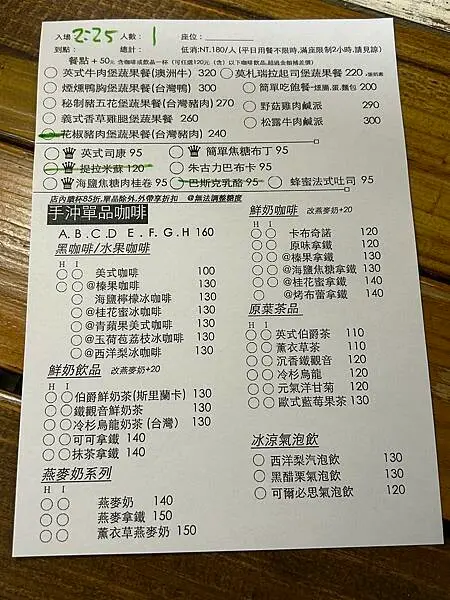 入場 2:25 人數: 1 座位:
到點: 總計: 低消:NT.180/人(平日用餐不限時,滿座限制2小時,請見諒)
餐點 + 50元 含咖啡或飲品一杯 (可任選120元 (含) 以下咖啡飲品,超過金額補差價)
英式牛肉堡蔬果餐(澳洲牛) 320
莫札瑞拉起司堡蔬果餐 220 +蛋奶素
煙燻鴨胸堡蔬果餐(台灣鴨) 300
簡單吃飽餐-燻腸.蛋.麵包 200
秘制豬五花堡蔬果餐(台灣豬肉) 270
野菇雞肉鹹派 290
義式香草雞腿堡蔬果餐 260
松露牛肉鹹派 300
花椒豬肉堡蔬果餐(台灣豬肉) 240
英式司康 95
簡單焦糖布丁 95
提拉米蘇 120
朱古力巴布卡 95
海鹽焦糖肉桂卷 95
巴斯克乳酪 95
蜂蜜法式吐司 95
店內續杯85折,單品除外.外帶享折扣 @無法調整糖度
手沖單品咖啡
A.B.C.D E.F.G.H 160
黑咖啡/水果咖啡
H I
美式咖啡 100
@榛果咖啡 130
海鹽檸檬冰咖啡 130
@桂花蜜冰咖啡 130
@青蘋果美式咖啡 130
@玉荷苞荔枝冰咖啡 130
@西洋梨冰咖啡 130
鮮奶飲品 改燕麥奶+20
H I
伯爵鮮奶茶(斯里蘭卡) 130
鐵觀音鮮奶茶 130
冷杉烏龍奶茶 (台灣) 130
可可拿鐵 140
抹茶拿鐵 140
燕麥奶系列
H I
燕麥奶 140
燕麥拿鐵 150
薰衣草燕麥奶 150
鮮奶咖啡 改燕麥奶+20
H I
卡布奇諾 120
原味拿鐵 120
@榛果拿鐵 130
@海鹽焦糖拿鐵 130
@桂花蜜拿鐵 140
@烤布蕾拿鐵 140
原葉茶品
H I
英式伯爵茶 110
薰衣草茶 110
沉香鐵觀音 120
冷杉烏龍 120
元氣洋甘菊 120
歐式藍莓果茶 130
冰涼氣泡飲
西洋梨汽泡飲 130
黑醋栗氣泡飲 130
可爾必思氣泡飲 120